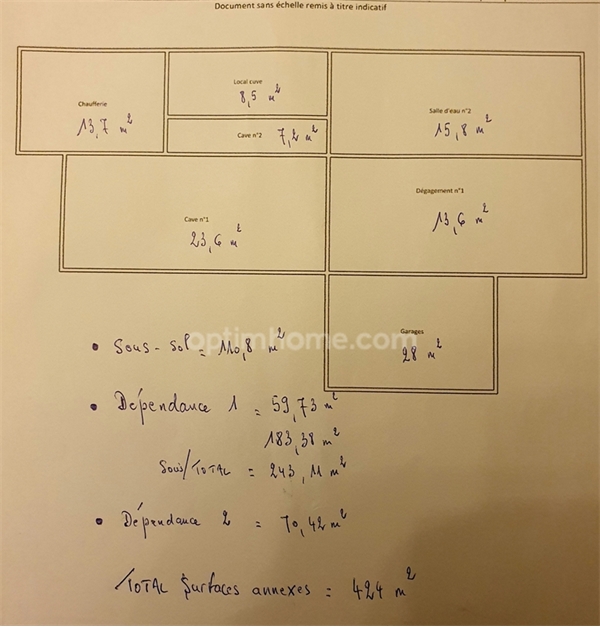 Document sans échelle remis à titre indicatif
Chaufferie
13,7 m²
Local cuve
8,5 m²
Cave n°2 7,2 m²
Salle d'eau n°2
15,8 m²
Cave n°1
23,6 m²
Dégagement n°1
13,6 m²
Garages
28 m²
optimhome.com
• Sous-sol = 110,8 m²
• Dépendance 1 = 59,73 m²
183,38 m²
Sous/TOTAL = 243,11 m²
• Dépendance 2 = 70,42 m²
TOTAL Surfaces annexes = 424 m²